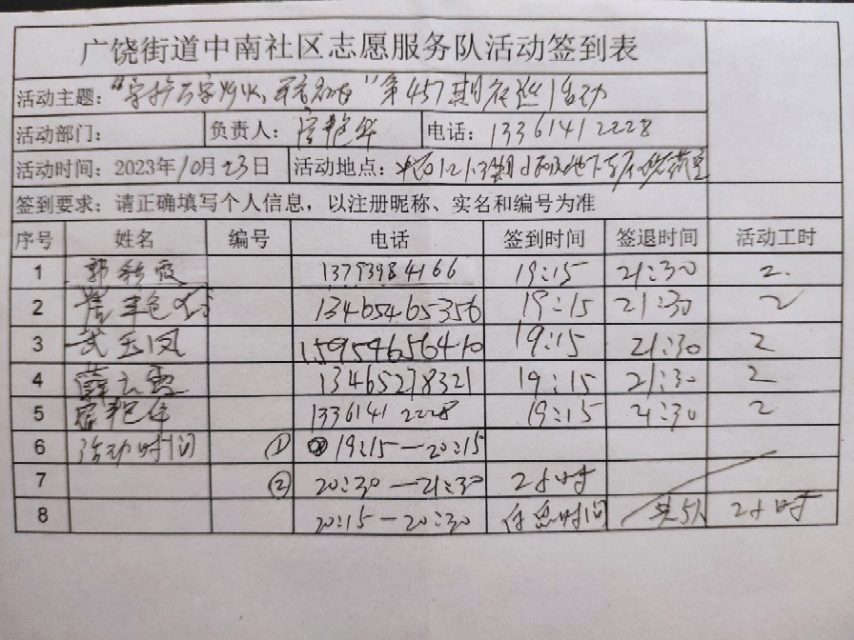 广饶街道中南社区志愿服务队活动签到表
活动主题： "守护万家灯火 " 第457期夜巡活动
活动部门： 负责人： 电话： 13361412228
活动时间： 2023年10月23日 活动地点：
签到要求：请正确填写个人信息，以注册昵称、实名和编号为准
序号 姓名 编号 电话 签到时间 签退时间 活动工时
1 郭秋霞 13793984166 19:15 21:30 2
2 13465465356 19:15 21:30 2
3 武玉凤 15954656410 19:15 21:30 2
4 13465278321 19:15 21:30 2
5 13361412228 19:15 21:30 2
6 活动时间 ① 19:15—20:15
7 ② 20:30—21:30 2小时
8 20:15—20:30 休息时间 共5人 2小时